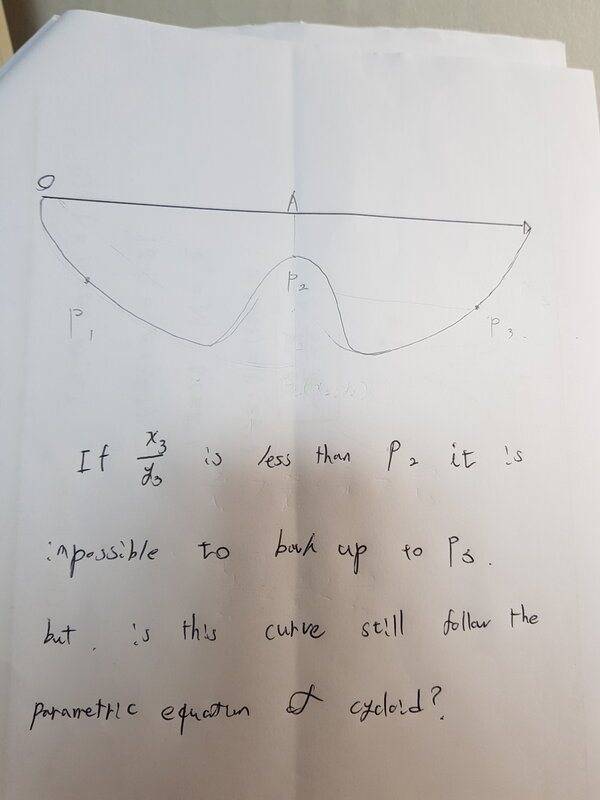 O
A
P1
P2
P3.
If x3/y3 is less than P2 it is
impossible to back up to P3.
but. is this curve still follow the
parametric equation of cycloid?